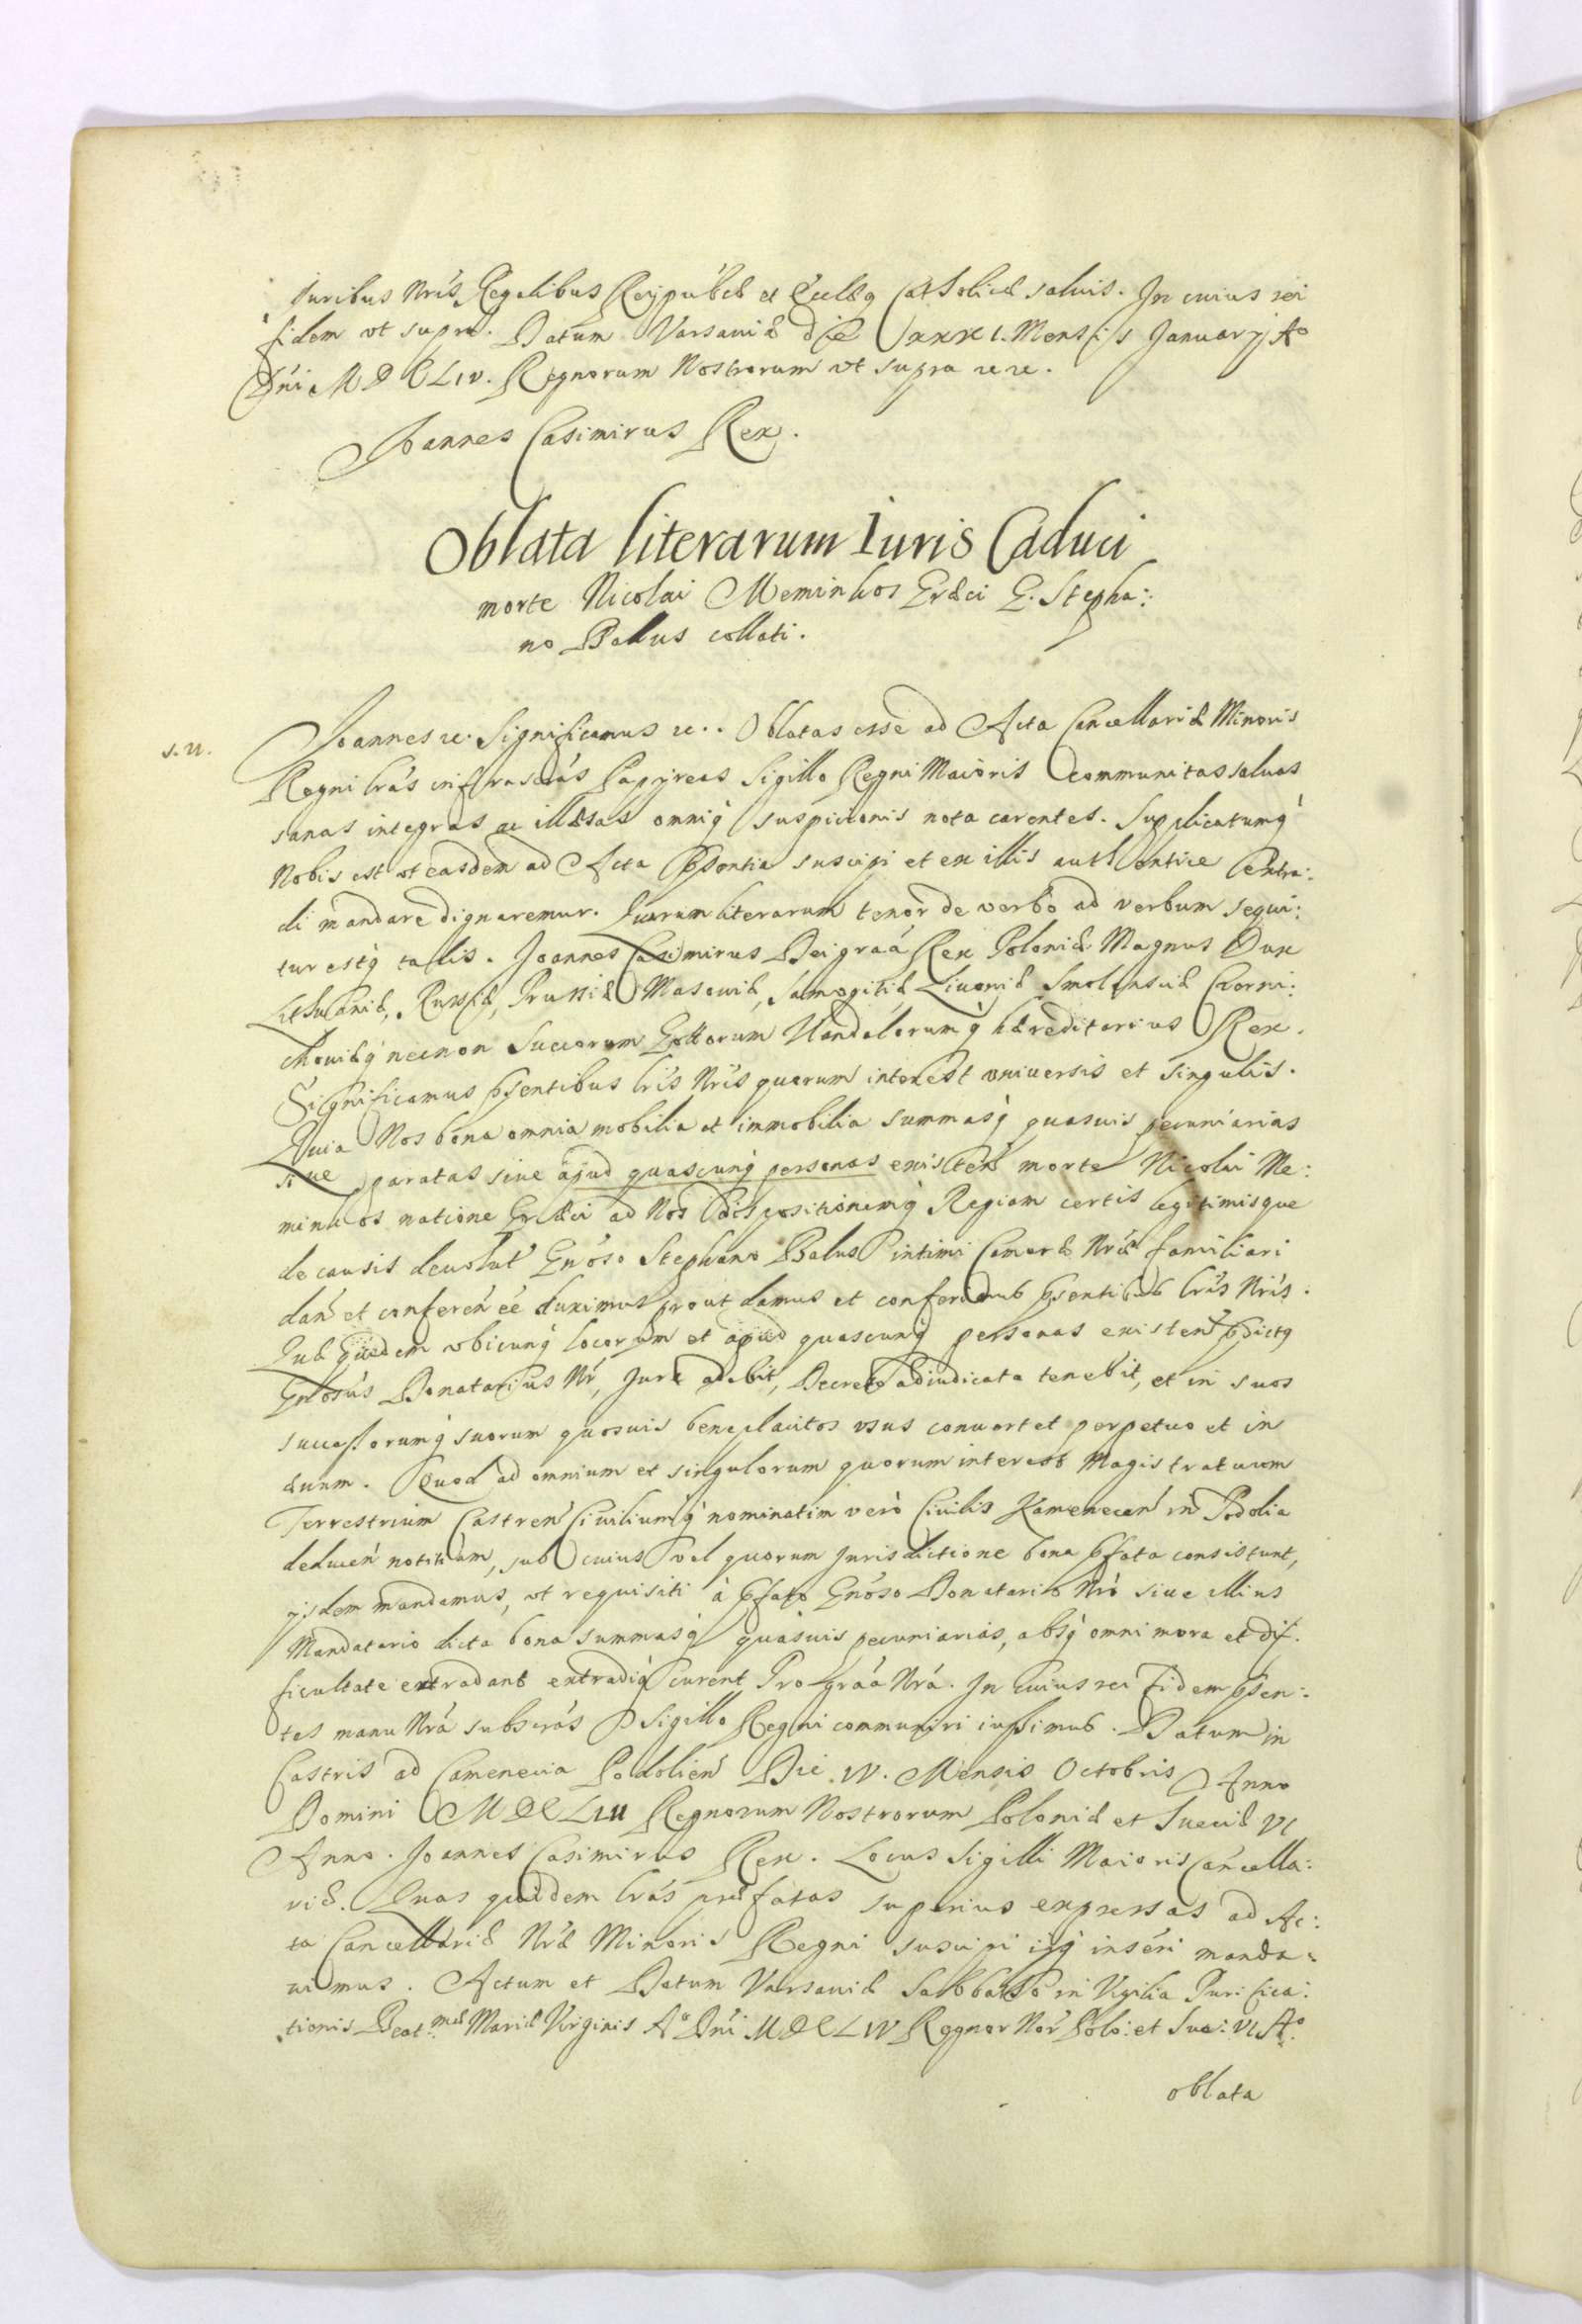 Juribus Nrīs Regalibus Reipublcæ et Ecclæq Catholicæ salvis. In cuius rei
fidem ut supra. Datum Varsaviæ die XXXI. Mensis January Aº
Dni MDCLIV. Regnorum Nostrorum ut supra etc.
Joannes Casimirus Rex.
Oblata literarum Iuris Caduci
morte Nicolai Meminkos Græci G. Stepha:
no Balus collati.
s. n.
Joannes etc. Significamus etc. Oblatas esse ad Acta Cancellariæ Minoris
Regni lrás infrascrás Papyreas Sigillo Regni Maioris communitas salvas
sanas integras ac illæsas omniq́ suspicionis nota carentes. Supplicatumq́
Nobis est ut easdem ad Acta pṡentia suscipi et ex illis authentice extra:
di mandare dignaremur. Quarum literarum tenor de verbo ad verbum sequi:
tur estq́ talis. Joannes Casimirus Dei graá Rex Poloniæ Magnus Dux
Lithuaniæ, Russiæ, Prussiæ Masoviæ, Samogitiæ Livoniæ Smolensciæ Czerni:
choviæq́ necnon Suecorum Gottorum Vandalorumq́ hæreditarius Rex.
Significamus pṡentibus lrís Nrís quorum interest universis et singulis.
Quia Nos bona omnia mobilia et immobilia summasq́ quasuis pecuniarias
siue paratas siue apud quascunq́ personas existen̄ morte Nicolai Me:
minkos natione Græci ad Nos dispositionemq́ Regiam certis legitimisque
de causis devolut̄ Gnoso Stephano Balus intimi Cameræ Nræ familiari
dan̄ et conferen̄ eé duximus prout damus et conferimus pṡentibus lrís Nrís.
Quæ quidem ubicunq́ locorum et apud quascunq́ personas existen̄ pdictq
Gnosús Donatarius Nr, Jure adibit, Decreto adiudicata tenebit, et in suos
successorumq́ suorum quosuis beneplacitos usus convertet perpetuo et in
ævum. Quod ad omnium et singulorum quorum interest Magistratuum
Terrestrium Castren̄ Civiliumq́ nominatim verò Civilis Kamenecen̄ in Podolia
deducen̄ notitiam, sub cuius vel quorum Jurisdictione bona pfata consistunt,
ijsdem mandamus, ut requisiti à pfato Gnoso Donatario Nró siue illius
Mandatario dicta bona summasq́ quasuis pecuniarias, absq́ omni mora et dif:
ficultate extradant extradiq́ curent Pro graá Nrá. In cuius rei fidem pṡen:
tes manu Nrá subscrás Sigillo Regni communiri iussimus. Datum in
Castris ad Camenecia Podolien̄ Die IV. Mensis Octobris Anno
Domini MDCLIII Regnorum Nostrorum Poloniæ et Sueciæ VI
Anno. Joannes Casimirus Rex. Locus Sigilli Maioris Cancella:
riæ. Quas quidem lrás præfatas superius expressas ad Ac:
ta Cancellariæ Nræ Minoris Regni suscipi ijsq́ inséri manda:
vimus. Actum et Datum Varsaviæ Sabbatho in Vigilia Purifica:
tionis Beat:mæ Mariæ Virginis Aº Dni MDCLIV Regnor Nor Polo: et Sue: VI Aº
oblata